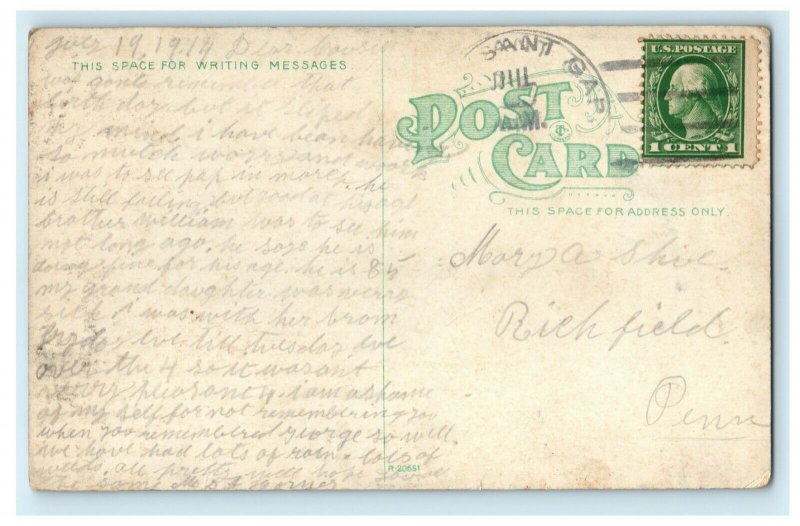 July 19, 1914 Dear
THIS SPACE FOR WRITING MESSAGES
was gone remember that
birthday but it sliped
my mind. i have bean having
so mutch worry and work
i was to see pap in march. he
is still failing but good at his age
brother William was to see him
not long ago. he says he is
doing fine for his age. he is 85
my grand daughter was verry
sick i was with her from
fryday eve till tuesday eve
over the 4 so it wasant
verry pleasant. i am ashame
of my self for not remembering you
when you remembered george so well.
we have had lots of rain. lots of
weeds. all pretty well hope you're
the same
R-20551
SANT GAP
JUL
A.M.
U.S. POSTAGE
1 CENT 1
POST
&
CARD
THIS SPACE FOR ADDRESS ONLY.
Mary A Shive.
Richfield.
Penn